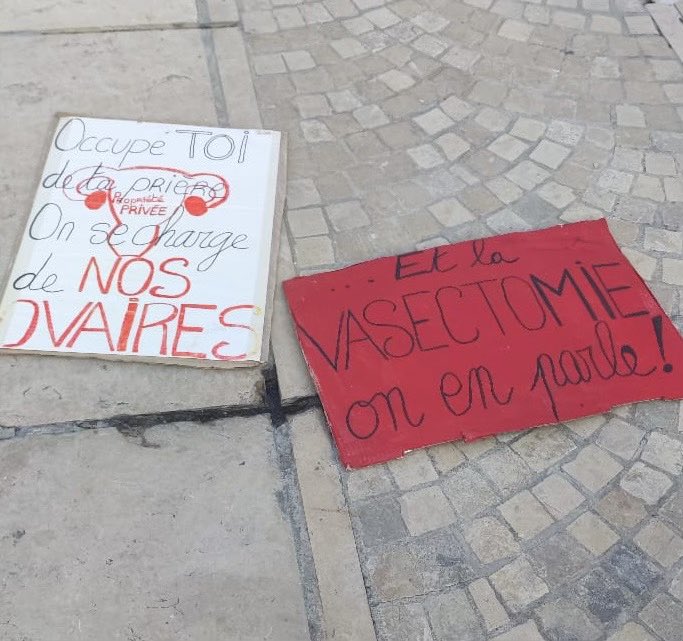 Occupe TOI
de ta prière
PROPRIÉTÉ
PRIVÉE
On se charge
de NOS
OVAIRES
... Et la
VASECTOMIE
on en parle!